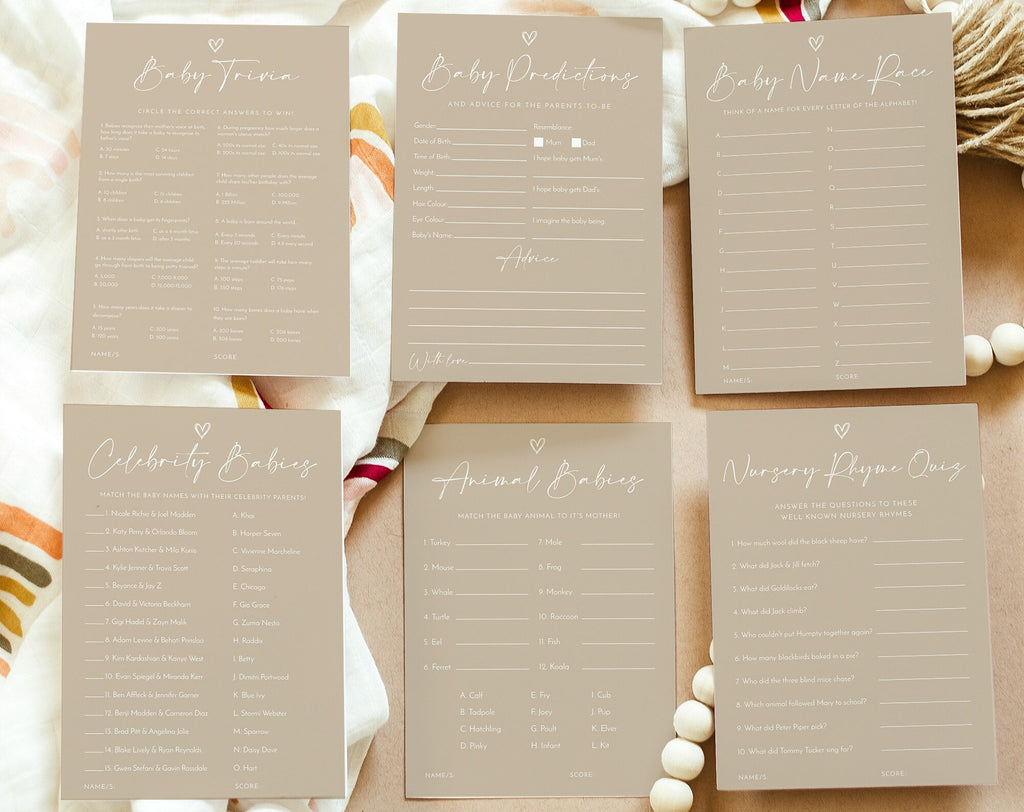 Baby Trivia
CIRCLE THE CORRECT ANSWERS TO WIN!
1. Babies recognize their mother's voice at birth,
how long does it take a baby to recognise its
father's voice?
A. 30 minutes C. 24 hours
B. 7 days D. 14 days
2. How many is the most surviving children
from a single birth?
A. 10 children C. 11 children
B. 8 children D. 6 children
3. When does a baby get its fingerprints?
A. shortly after birth C. as a 6 month fetus
B. as a 3 month fetus D. after 3 months
4. How many diapers will the average child
go through from birth to being potty trained?
A. 5,000 C. 7,000-9,000
B. 20,000 D. 12,000-15,000
5. How many years does it take a diaper to
decompose?
A. 15 years C. 300 years
B. 120 years D. 500 years
6. During pregnancy how much larger does a
woman's uterus stretch?
A. 500x its normal size C. 40x its normal size
B. 200x its normal size D. 100x its normal size
7. How many other people does the average
child share her/his birthday with?
A. 1 Billion C. 300,000
B. 225 Million D. 9 Million
8. A baby is born around the world...
A. Every 3 seconds C. Every minute
B. Every 20 seconds D. 4.3 every second
9. The average toddler will take how many
steps a minute?
A. 300 steps C. 75 steps
B. 150 steps D. 176 steps
10. How many bones does a baby have when
they are born?
A. 300 bones C. 206 bones
B. 306 bones D. 200 bones
NAME/S: SCORE:
Baby Predictions
AND ADVICE FOR THE PARENTS-TO-BE
Gender:
Date of Birth:
Time of Birth:
Weight:
Length:
Hair Colour:
Eye Colour:
Baby's Name:
Resemblance:
Mum Dad
I hope baby gets Mum's:
I hope baby gets Dad's:
I imagine the baby being:
Advice
With love
Baby Name Race
THINK OF A NAME FOR EVERY LETTER OF THE ALPHABET!
A
B
C
D
E
F
G
H
I
J
K
L
M
N
O
P
Q
R
S
T
U
V
W
X
Y
Z
NAME/S: SCORE:
Celebrity Babies
MATCH THE BABY NAMES WITH THEIR CELEBRITY PARENTS!
1. Nicole Richie & Joel Madden
2. Katy Perry & Orlando Bloom
3. Ashton Kutcher & Mila Kunis
4. Kylie Jenner & Travis Scott
5. Beyance & Jay Z
6. David & Victoria Beckham
7. Gigi Hadid & Zayn Malik
8. Adam Levine & Behati Prinsloo
9. Kim Kardashian & Kanye West
10. Evan Spiegel & Miranda Kerr
11. Ben Affleck & Jennifer Garner
12. Benji Madden & Cameron Diaz
13. Brad Pitt & Angelina Jolie
14. Blake Lively & Ryan Reynolds
15. Gwen Stefani & Gavin Rossdale
A. Khai
B. Harper Seven
C. Vivienne Marcheline
D. Seraphina
E. Chicago
F. Gio Grace
G. Zuma Nesta
H. Raddix
I. Betty
J. Dimitri Portwood
K. Blue Ivy
L. Stormi Webster
M. Sparrow
N. Daisy Dove
O. Hart
NAME/S: SCORE:
Animal Babies
MATCH THE BABY ANIMAL TO IT'S MOTHER!
1. Turkey
2. Mouse
3. Whale
4. Turtle
5. Eel
6. Ferret
7. Mole
8. Frog
9. Monkey
10. Raccoon
11. Fish
12. Koala
A. Calf
B. Tadpole
C. Hatchling
D. Pinky
E. Fry
F. Joey
G. Poult
H. Infant
I. Cub
J. Pup
K. Elver
L. Kit
NAME/S: SCORE:
Nursery Rhyme Quiz
ANSWER THE QUESTIONS TO THESE
WELL KNOWN NURSERY RHYMES
1. How much wool did the black sheep have?
2. What did Jack & Jill fetch?
3. What did Goldilocks eat?
4. What did Jack climb?
5. Who couldn't put Humpty together again?
6. How many blackbirds baked in a pie?
7. Who did the three blind mice chase?
8. Which animal followed Mary to school?
9. What did Peter Piper pick?
10. What did Tommy Tucker sing for?
NAME/S: SCORE: